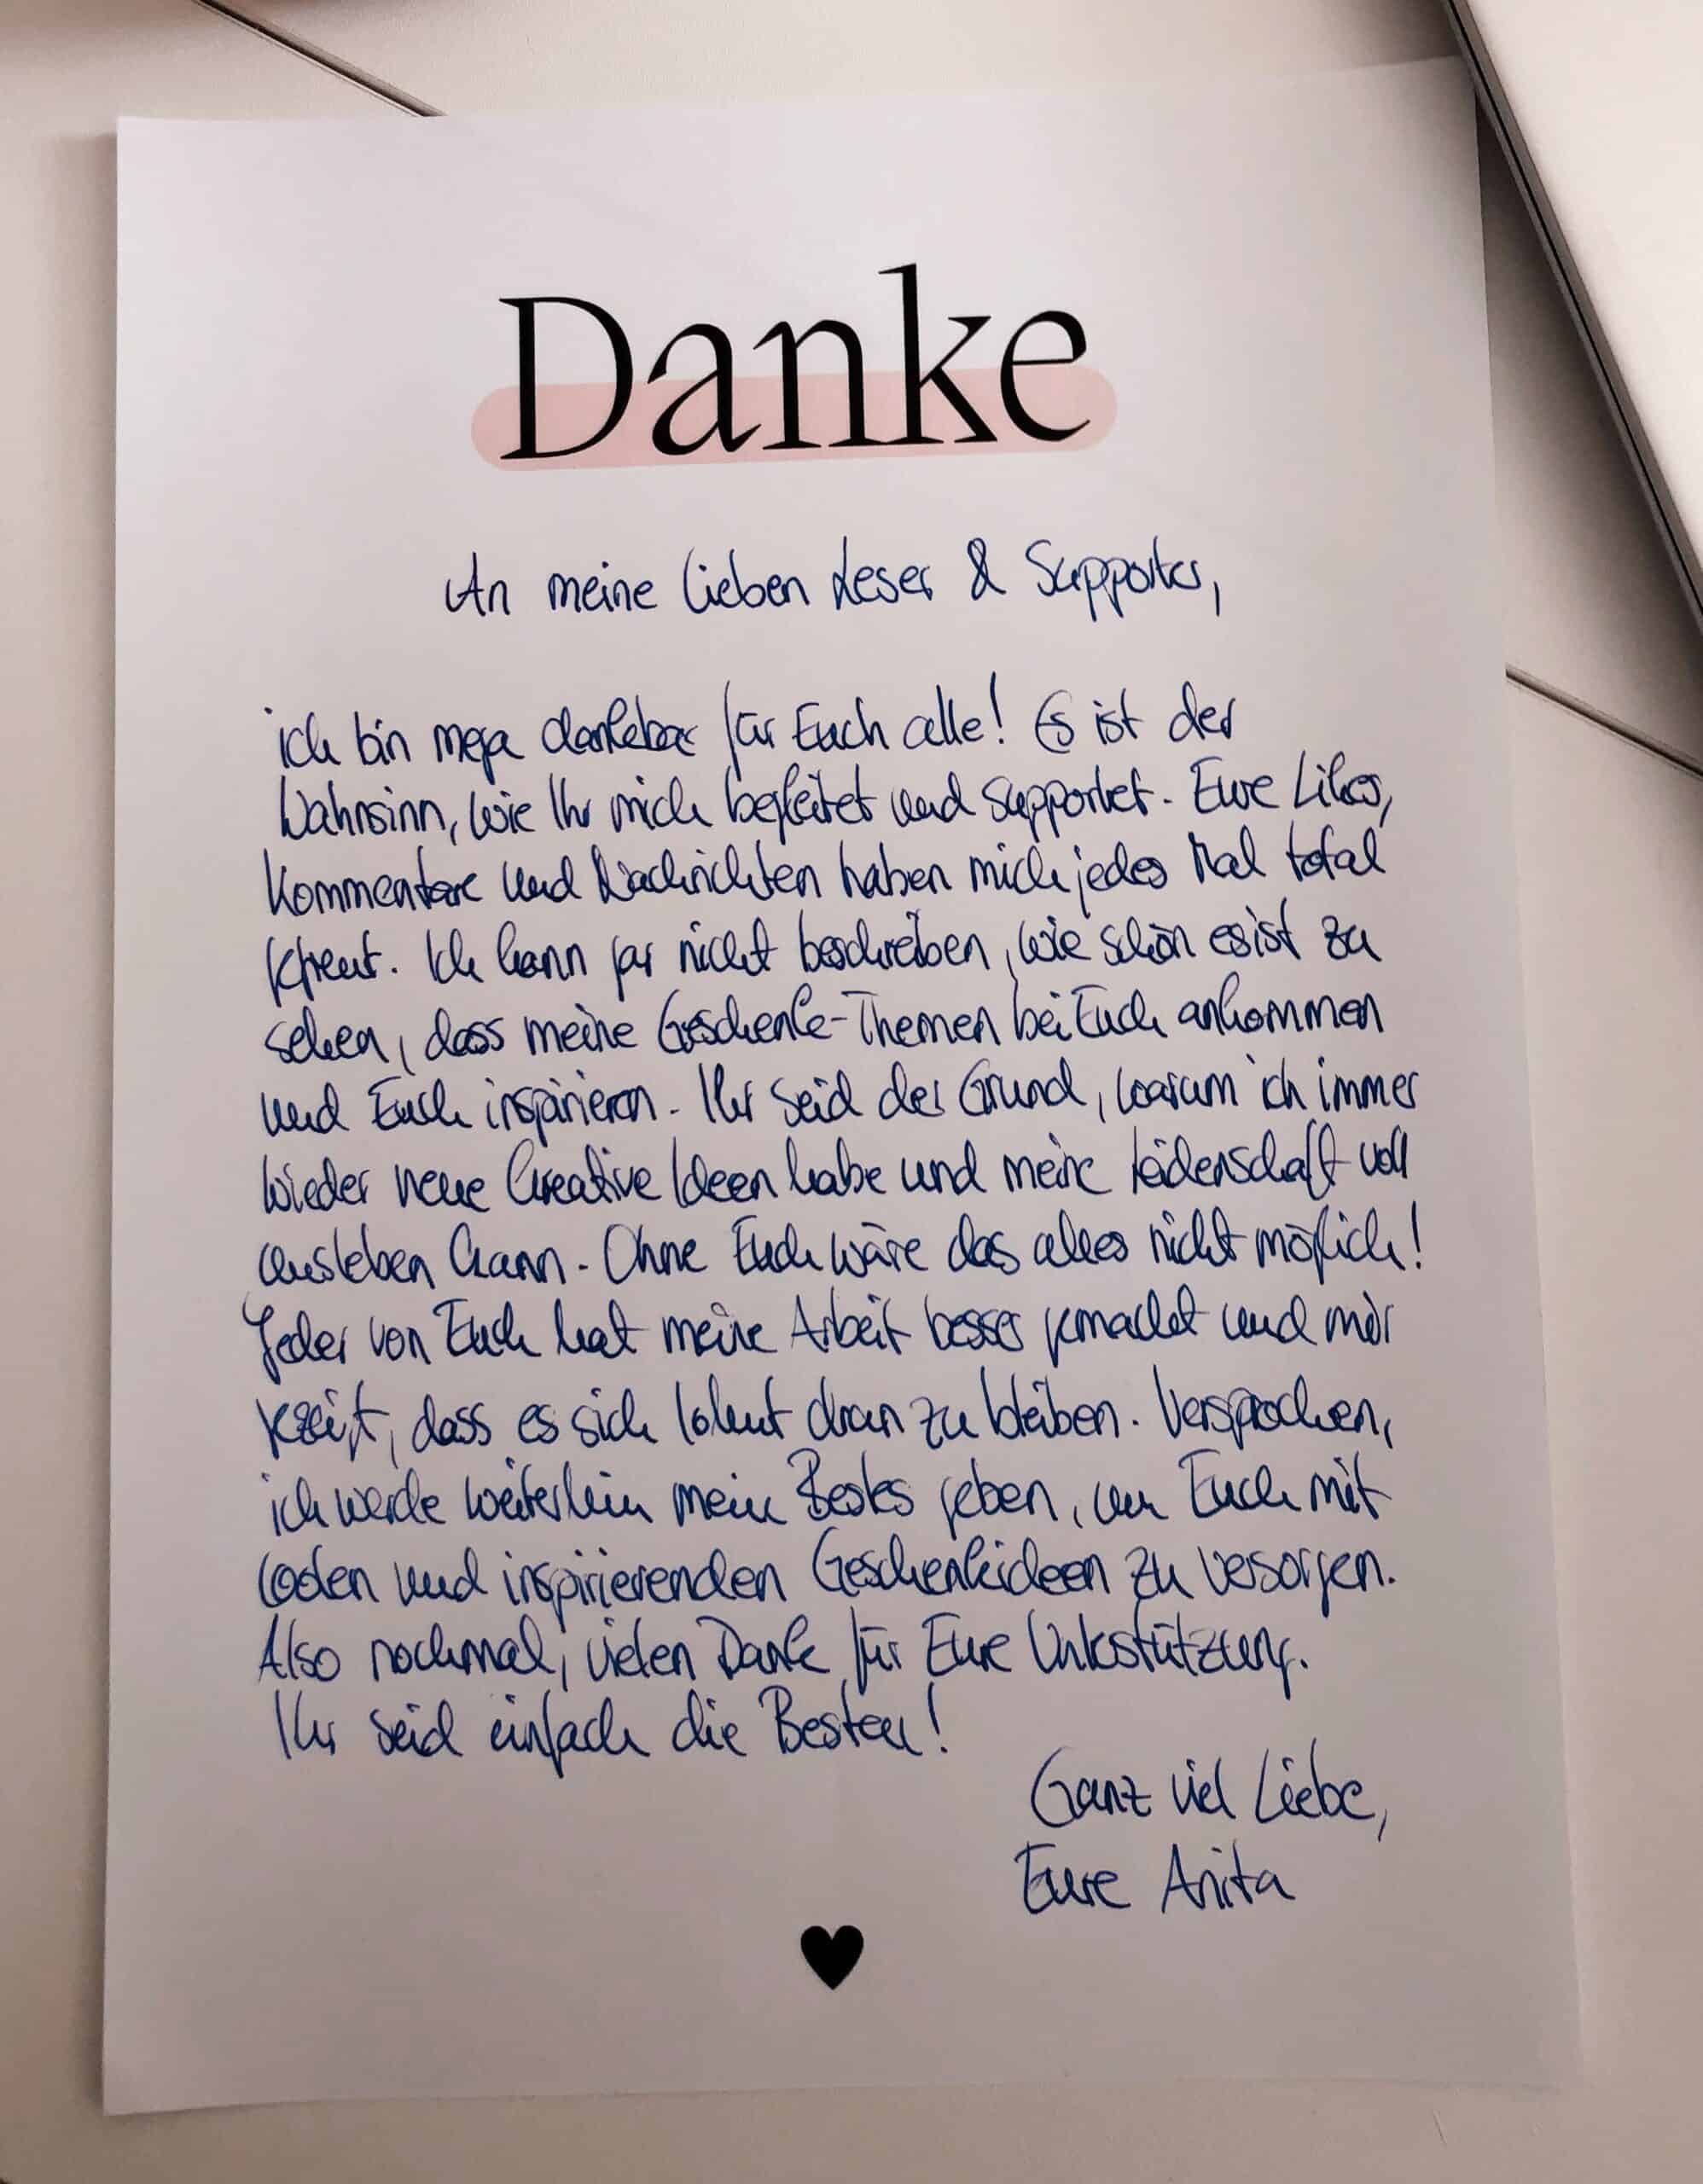 Danke
An meine lieben Leser & Supporter,
ich bin mega dankbar für Euch alle! Es ist der
Wahnsinn, wie Ihr mich begleitet und supportet. Eure Likes,
Kommentare und Nachrichten haben mich jedes Mal total
gefreut. Ich kann gar nicht beschreiben, wie schön es ist zu
sehen, dass meine Geschenke-Themen bei Euch ankommen
und Euch inspirieren. Ihr seid der Grund, warum ich immer
wieder neue kreative Ideen habe und meine Leidenschaft voll
ausleben kann. Ohne Euch wäre das alles nicht möglich!
Jeder von Euch hat meine Arbeit besser gemacht und mir
gezeigt, dass es sich lohnt dran zu bleiben. Versprochen,
ich werde weiterhin mein Bestes geben, um Euch mit
coolen und inspirierenden Geschenkideen zu versorgen.
Also nochmal, vielen Dank für Eure Unterstützung.
Ihr seid einfach die Besten!
Ganz viel Liebe,
Eure Anita